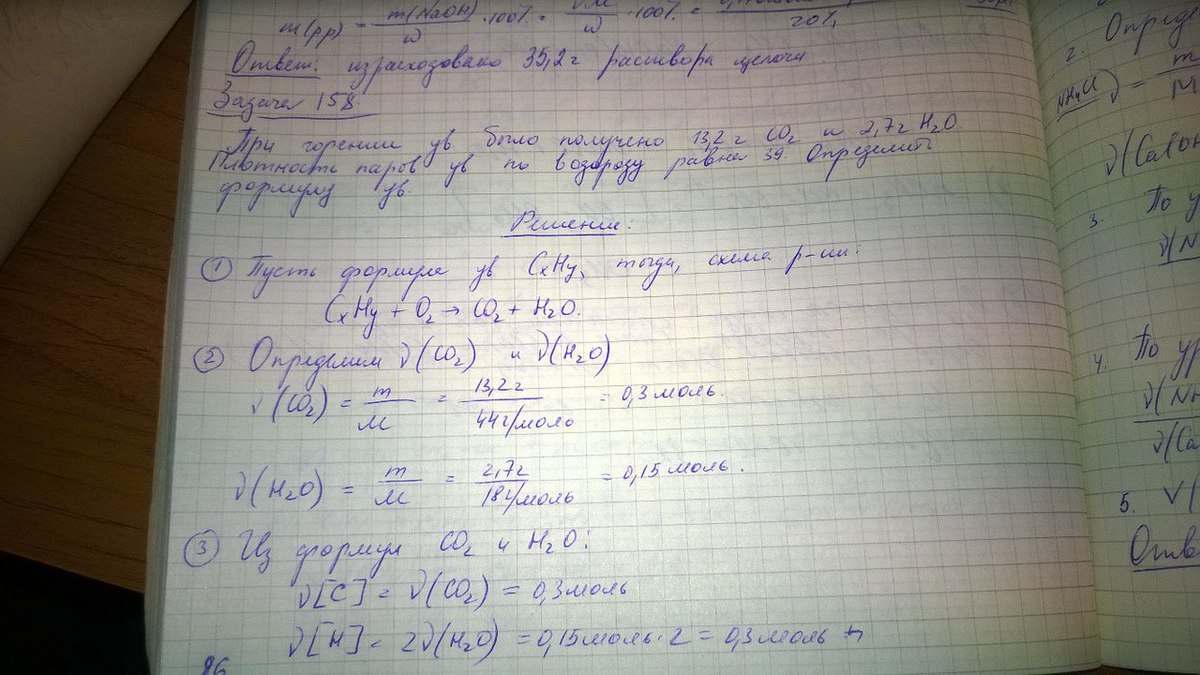 m(рр) = m(NaOH)/ω · 100% = νM/ω · 100% =
20%
Ответ: израсходовано 35,2 г раствора щелочи.
Задача 158.
При горении ув было получено 13,2 г CO2 и 2,7г H2O
Плотность паров ув по водороду равна 39. Определить
формулу ув.
Решение:
① Пусть формула ув CxHy, тогда, схема р-ии:
CxHy + O2 → CO2 + H2O.
② Определим ν(CO2) и ν(H2O)
ν(CO2) = m/M = 13,2 г/44г/моль = 0,3 моль.
ν(H2O) = m/M = 2,7г/18г/моль = 0,15 моль.
③ Из формул CO2 и H2O:
ν[C] = ν(CO2) = 0,3 моль
ν[H] = 2ν(H2O) = 0,15 моль · 2 = 0,3 моль
86
2. Опреде
NH4Cl ν = m
M
ν(CaOH
3. По у
ν(N
4. По ур
ν(NH
ν(Ca
5. V(
Отв